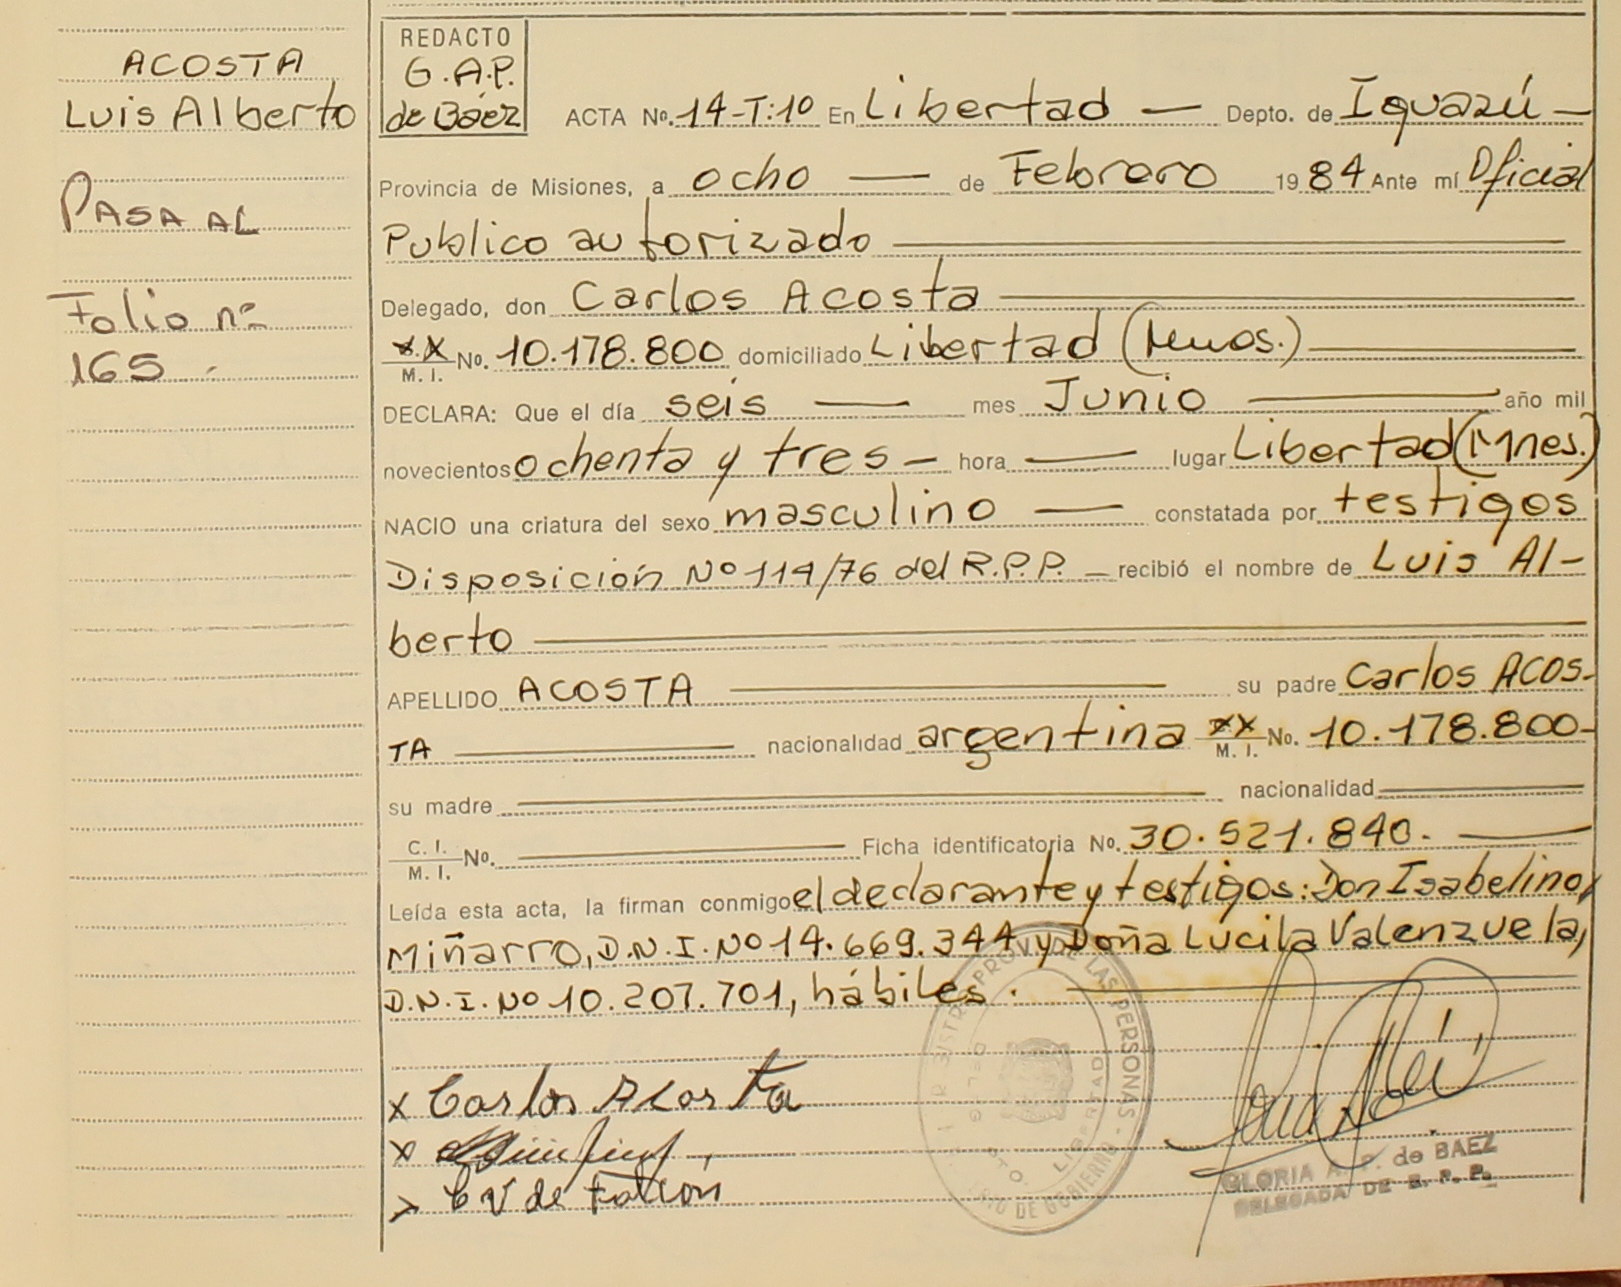 ACOSTA
Luis Alberto
PASA AL
Folio nº
165
REDACTO
G.A.P.
de Báez
ACTA Nº. 14-T:1º En Libertad — Depto. de Iguazú —
Provincia de Misiones, a ocho — de Febrero 1984 Ante mí Oficial
Publico autorizado
Delegado, don Carlos Acosta
M. I. No. 10.178.800 domiciliado Libertad (Mnes.)
DECLARA: Que el día seis — mes Junio — año mil
novecientos ochenta y tres — hora — lugar Libertad (Mnes.)
NACIO una criatura del sexo masculino — constatada por testigos
Disposición Nº 114/76 del R.P.P. — recibió el nombre de Luis Al-
berto
APELLIDO ACOSTA — su padre Carlos ACOS-
TA — nacionalidad argentina M. I. No. 10.178.800-
su madre — nacionalidad —
C. I. M. I. No. — Ficha identificatoria Nº. 30.521.840. —
Leída esta acta, la firman conmigo el declarante y testigos: Don Isabelino
Miñarro, D.N.I. Nº 14.669.344 y Doña Lucila Valenzuela,
D.N.I. Nº 10.207.701, hábiles. —
x Carlos Acosta
x
x C V de Falcon
PROV. DE LAS PERSONAS
LIBERTAD
DE GOBIERNO
GLORIA A. P. de BAEZ
DELEGADA DE R. P. P.